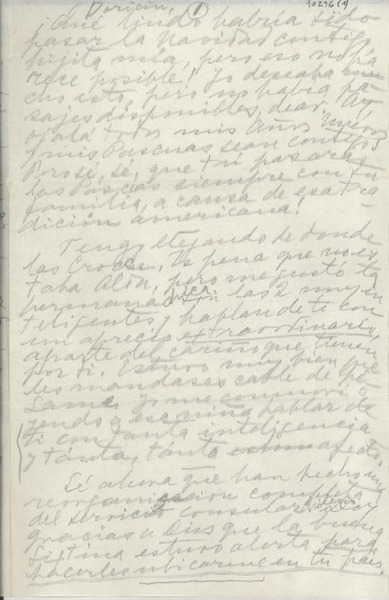 Dorian, 1 10296 (1)
¡Qué lindo habría sido
pasar la Navidad contigo
hijita mía, pero eso no pa
rece posible! Yo deseaba mu
cho esto, pero no había pa
sajes disponibles, dear. ¡Oj
ojalá todos mis Años Nuevos
y mis Pascuas sean contigo!
Pero sé, que tú pasarás
las Pascuas siempre con tu
familia, a causa de esa tra
dición americana!
Tengo llegando de donde
las Croce. Es pena que no es
taba Alda, pero me gustó la
hermana. Son las 2 muy in
teligentes y hablan de ti con
un aprecio extraordinario,
aparte del cariño que tienen
por ti. Estuvo muy bien que
les mandases cable de pé
same. Yo me conmoví o
yendo a esa niña hablar de
ti con tanta inteligencia
y tanta, tanto afecto.
Sé ahora que han hecho una
reorganización completa
del servicio consular y doy
gracias a Dios que la buena
estuvo alerta para
hacerles ubicarme en tu país.